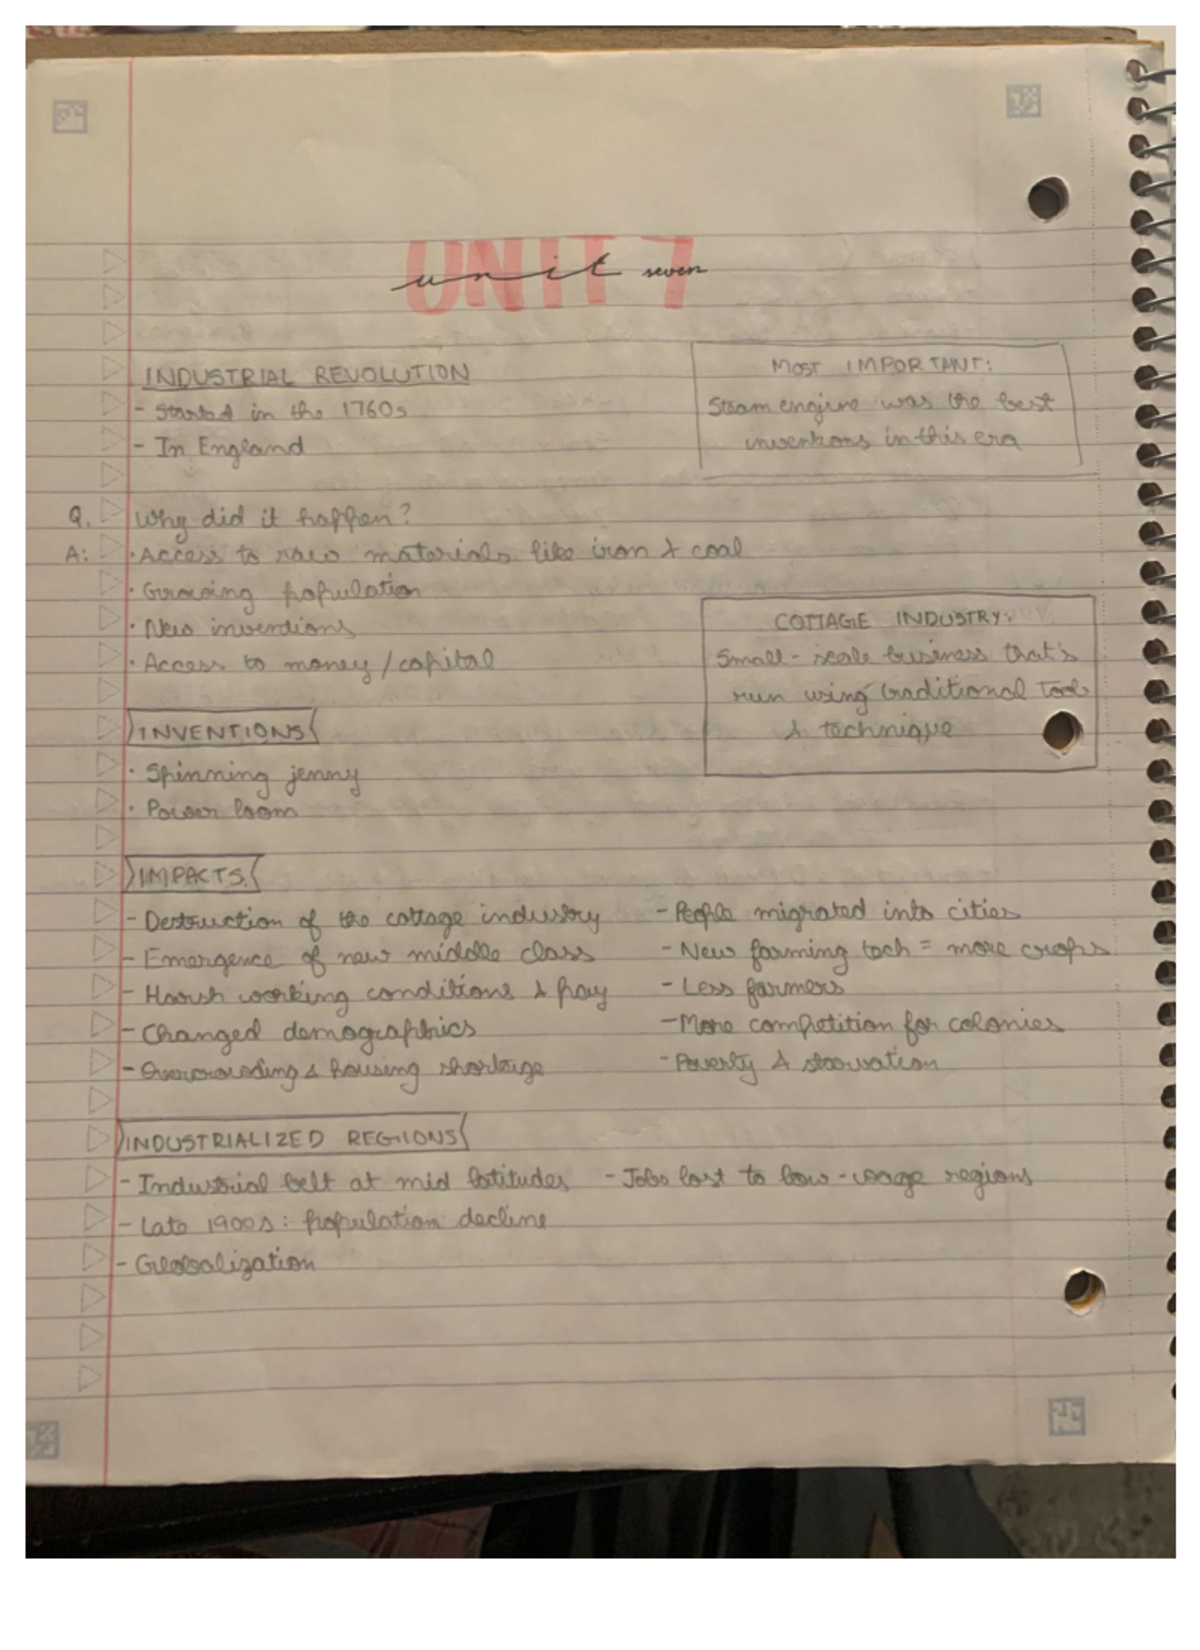 UNIT 7
unit seven
INDUSTRIAL REVOLUTION
- Started in the 1760s
- In England
MOST IMPORTANT:
Steam engine was the best
inventions in this era
Q. Why did it happen?
A: · Access to raw materials like iron & coal
· Growing population
· New inventions
· Access to money/capital
COTTAGE INDUSTRY:
Small-scale business that's
run using traditional tools
& technique
INVENTIONS
· Spinning jenny
· Power loom
IMPACTS
- Destruction of the cottage industry
- Emergence of new middle class
- Harsh working conditions & pay
- Changed demographics
- Overcrowding & housing shortage
- People migrated into cities
- New farming tech = more crops
- Less farmers
- More competition for colonies
- Poverty & starvation
INDUSTRIALIZED REGIONS
- Industrial belt at mid latitudes
- Late 1900s: population decline
- Globalization
- Jobs lost to low-wage regions